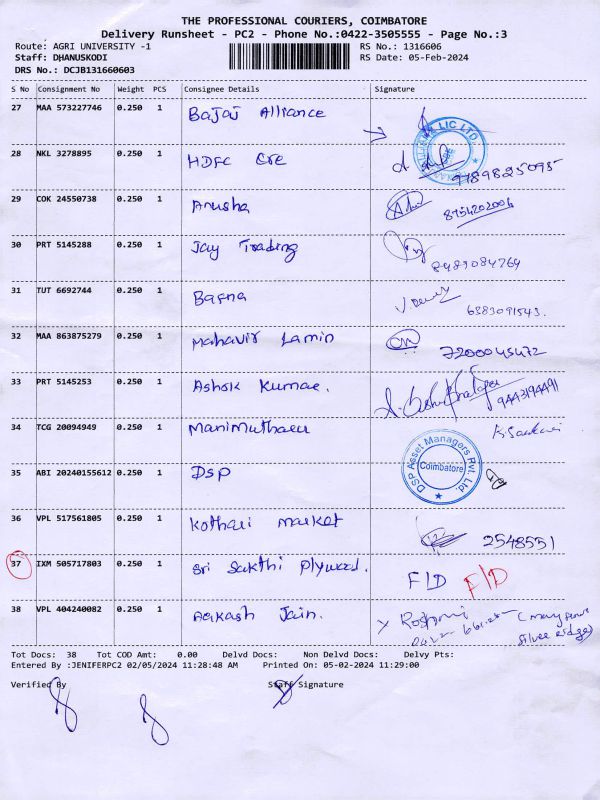 THE PROFESSIONAL COURIERS, COIMBATORE
Delivery Runsheet - PC2 - Phone No.:0422-3505555 - Page No.:3
Route: AGRI UNIVERSITY -1 RS No.: 1316606
Staff: DHANUSKODI RS Date: 05-Feb-2024
DRS No.: DCJB131660603
S No Consignment No Weight PCS Consignee Details Signature
27 MAA 573227746 0.250 1 Bajaj Alliance
LIC LTD
28 NKL 3278895 0.250 1 HDFC 9789825095
29 COK 24550738 0.250 1 Anusha 8754202006
30 PRT 5145288 0.250 1 Jay Trading 8489084764
31 TUT 6692744 0.250 1 Bafna 6383091543.
32 MAA 863875279 0.250 1 Mahavir Lamin 7200045472
33 PRT 5145253 0.250 1 Ashok Kumar. 9443194491
34 TCG 20094949 0.250 1 Manimutharu
DSP Asset Managers Pvt. Ltd.
Coimbatore
35 ABI 20240155612 0.250 1 DSP
36 VPL 517561805 0.250 1 Kothari Market 2548551
37 IXM 505717803 0.250 1 Sri Sakthi Plywood. F/D F/D
38 VPL 404240082 0.250 1 Aakash Jain. Roshni
silver ridge)
Tot Docs: 38 Tot COD Amt: 0.00 Delvd Docs: Non Delvd Docs: Delvy Pts:
Entered By :JENIFERPC2 02/05/2024 11:28:48 AM Printed On: 05-02-2024 11:29:00
Verified By Staff Signature